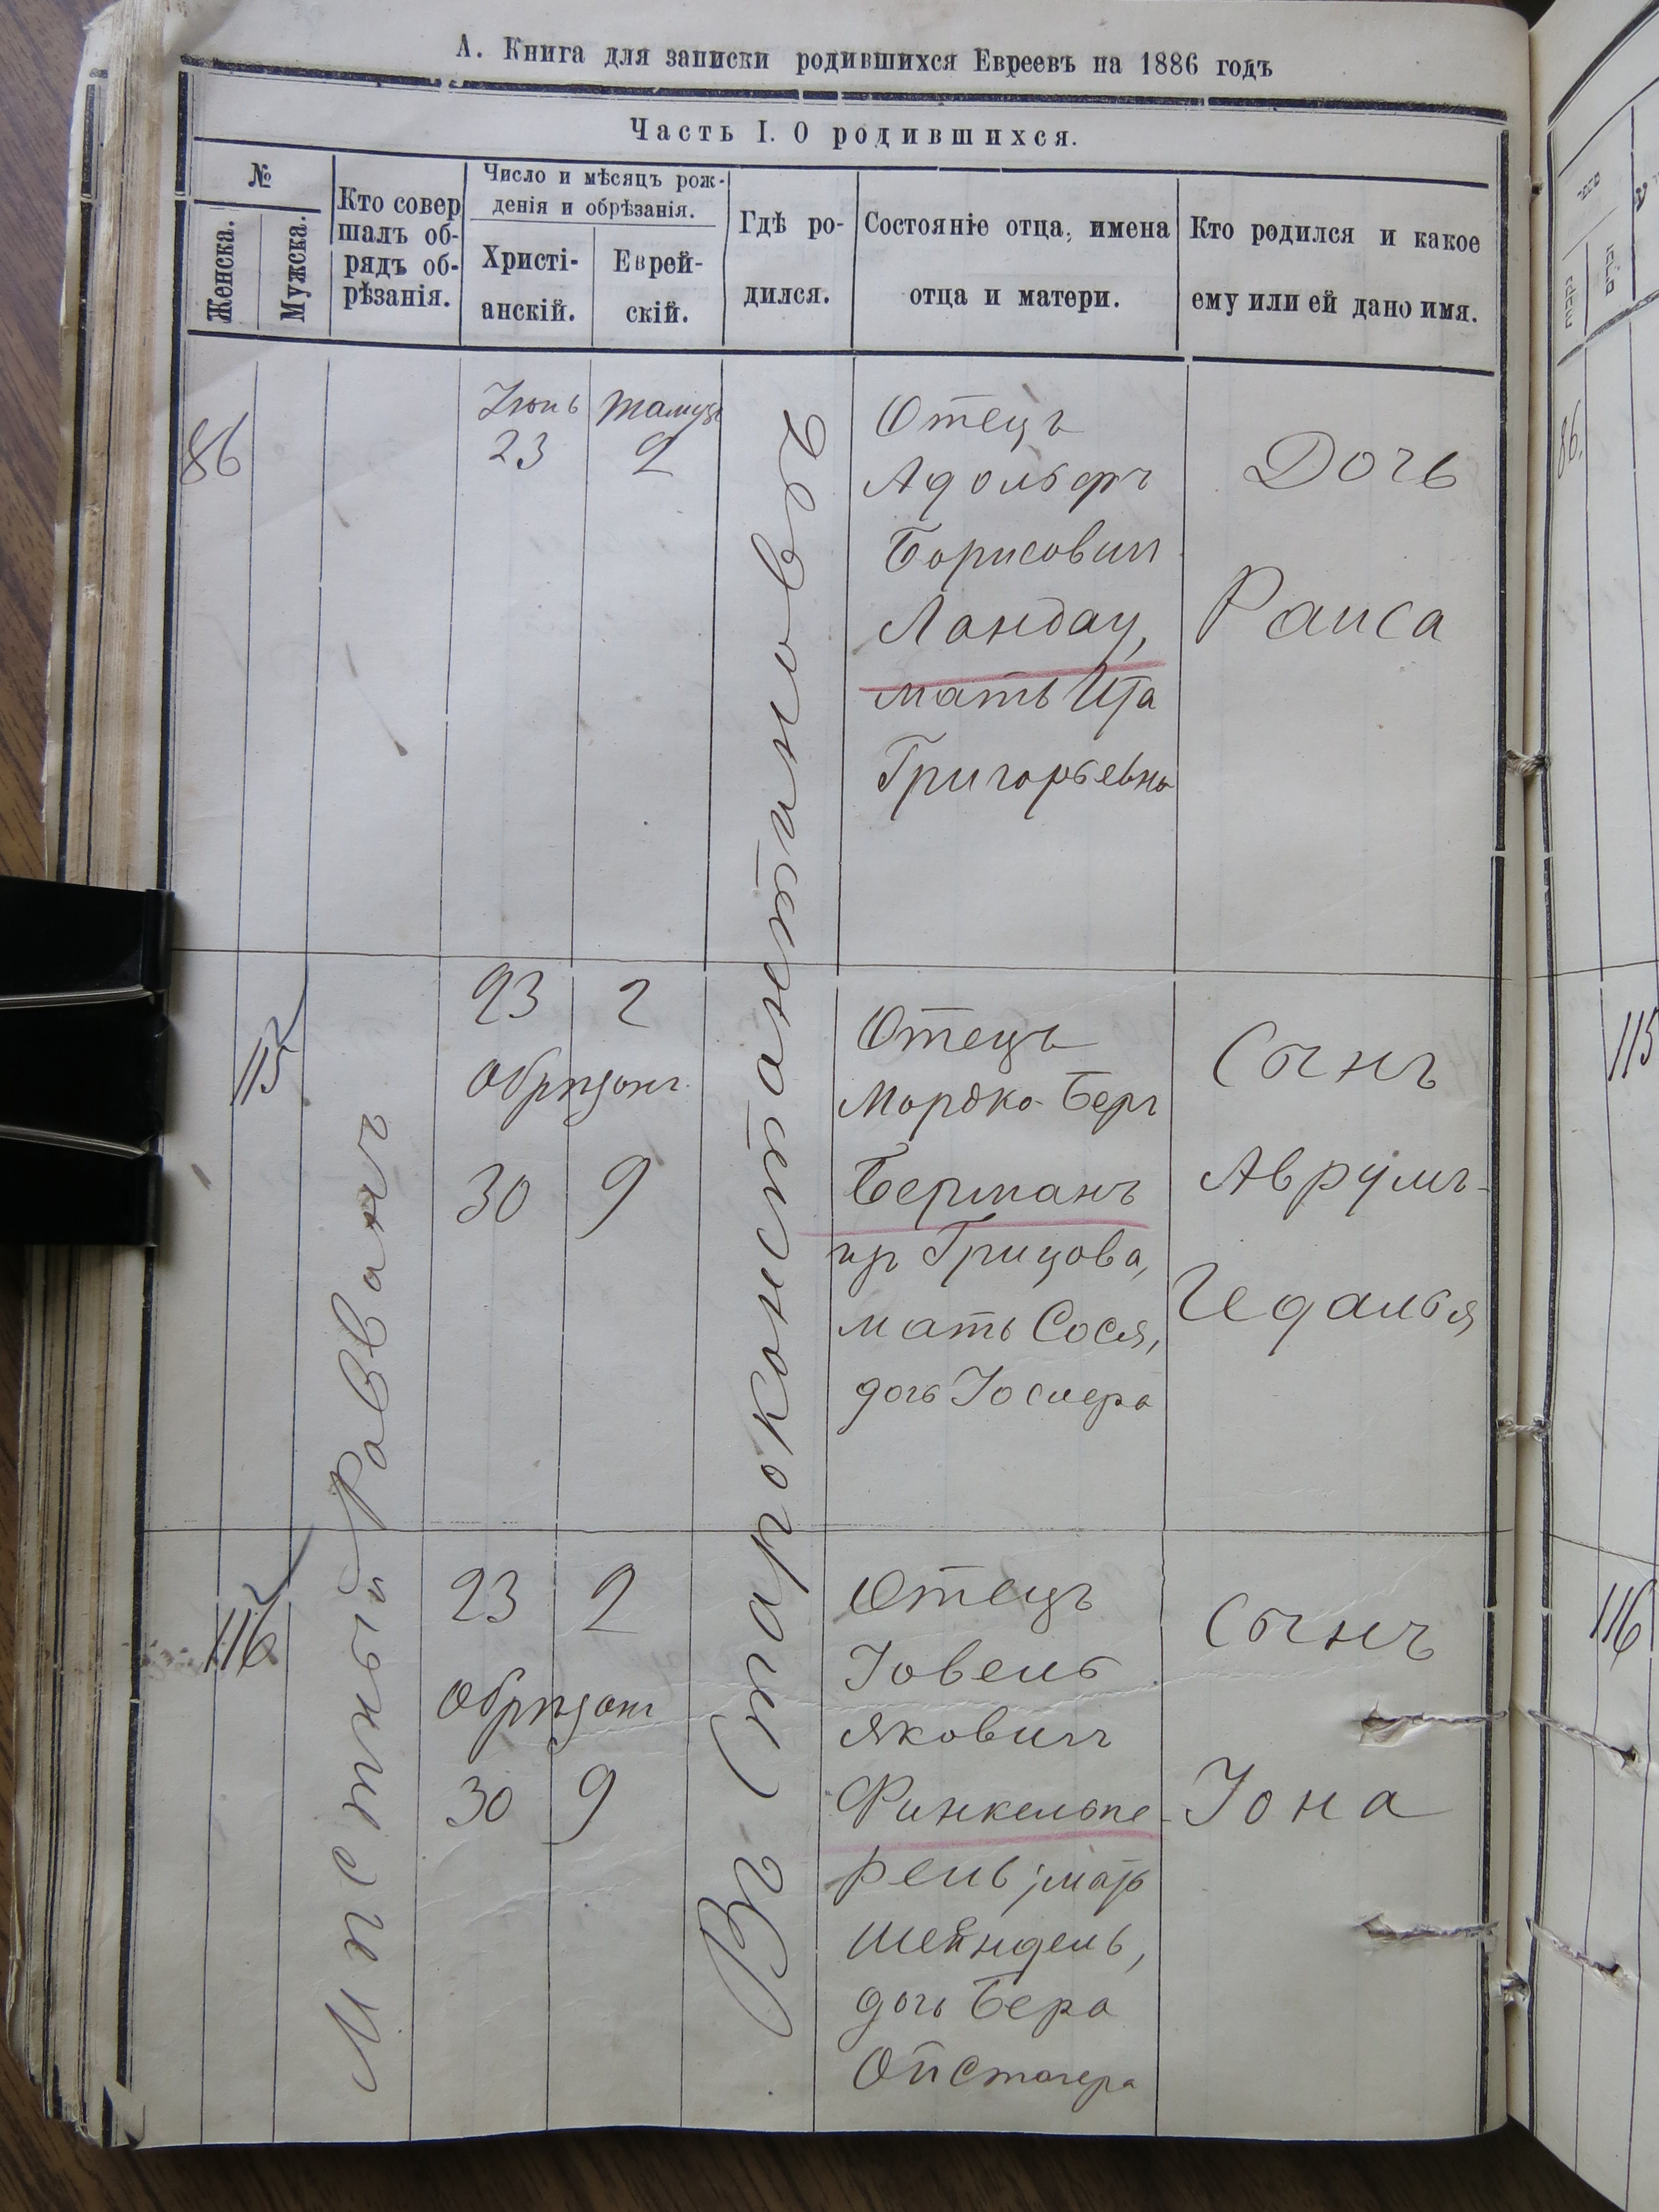 А. Книга для записки родившихся Евреевъ на 1886 годъ
Часть I. О родившихся.
№
Женска.
Мужска.
Кто совер
шалъ об-
рядъ об-
рѣзанія.
Число и мѣсяцъ рож-
денія и обрѣзанія.
Христі-
анскій.
Еврей-
скій.
Гдѣ ро-
дился.
Состояніе отца, имена
отца и матери.
Кто родился и какое
ему или ей дано имя.
Мѣстный Раввинъ
Въ Староконстантиновѣ
86
Іюнь
23
Тамузъ
2
Отецъ
Адольфъ
Борисович
Ландау,
мать Ита
Григорьевна
Дочь
Раиса
115
23 2
Обрѣзанъ
30 9
Отецъ
Мордко Беръ
Берманъ
изъ Грицова,
мать Сося,
дочь
Сынъ
Аврумъ-
Гедалья
116
23 2
Обрѣзанъ
30 9
Отецъ
Іовель
Яковичъ
Финкельпе-
рель; мать
Шейндель,
дочь Бера
Сынъ
Іона
86.
115
116